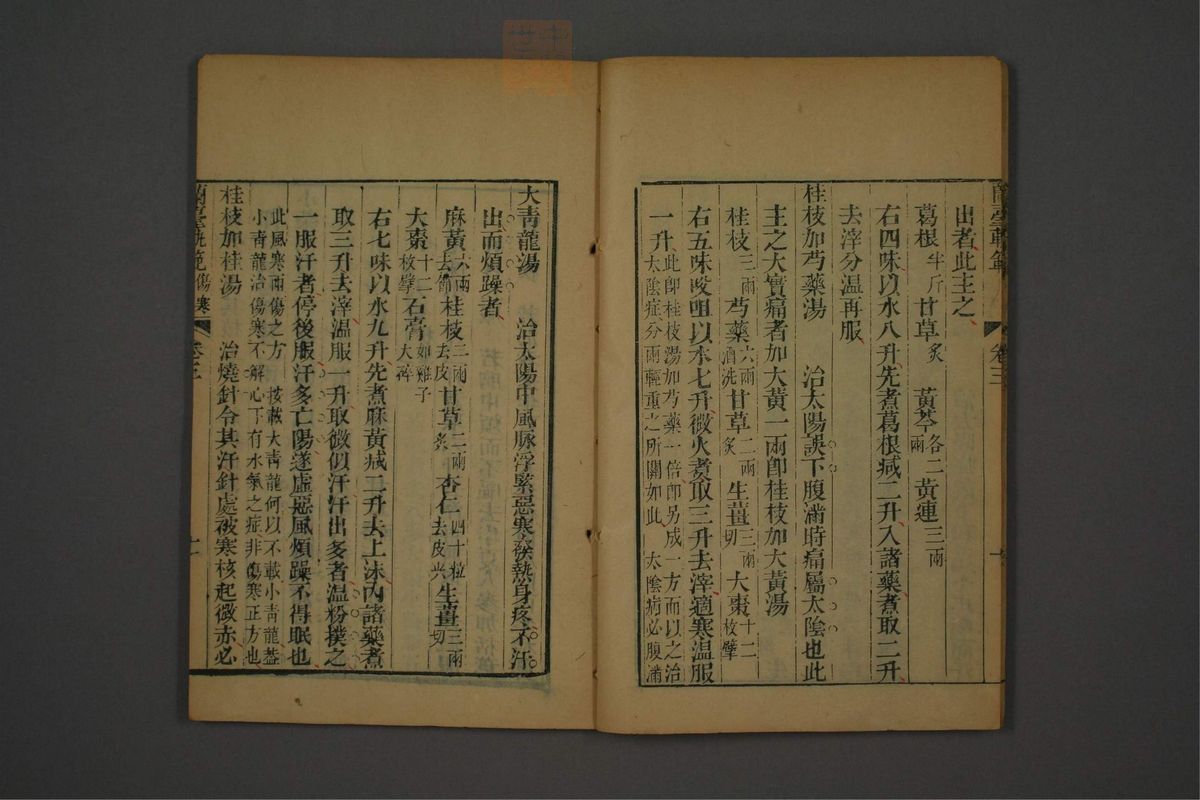 蘭臺軌範
卷三
出者此主之
葛根半斤 甘草炙 黃芩各二兩 黃連三兩
右四味以水八升先煮葛根減二升入諸藥煮取二升
去滓分温再服
桂枝加芍藥湯 治太陽誤下腹滿時痛屬太陰也此
主之大實痛者加大黃一兩卽桂枝加大黃湯
桂枝三兩 芍藥六兩酒洗 甘草二兩炙 生薑三兩切 大棗十二枚擘
右五味㕮咀以水七升微火煮取三升去滓適寒温服
一升此卽桂枝湯加芍藥一倍卽另成一方而以之治
太陰症分兩輕重之所關如此 太陰病必腹滿
大青龍湯 治太陽中風脉浮緊惡寒發熱身疼不汗
出而煩躁者
麻黃六兩去節 桂枝二兩去皮 甘草二兩炙 杏仁四十粒去皮尖 生薑三兩切
大棗十二枚擘 石膏如雞子大碎
右七味以水九升先煮麻黃減二升去上沫內諸藥煮
取三升去滓温服一升取微似汗汗出多者温粉撲之
一服汗者停後服汗多亡陽遂虛惡風煩躁不得眠也
此風寒兩傷之方 按載大青龍何以不載小青龍蓋
小青龍治傷寒不解心下有水氣之症非傷寒正方也
桂枝加桂湯 治燒針令其汗針處被寒核起微赤必
蘭臺軌範 傷寒
卷三
十一